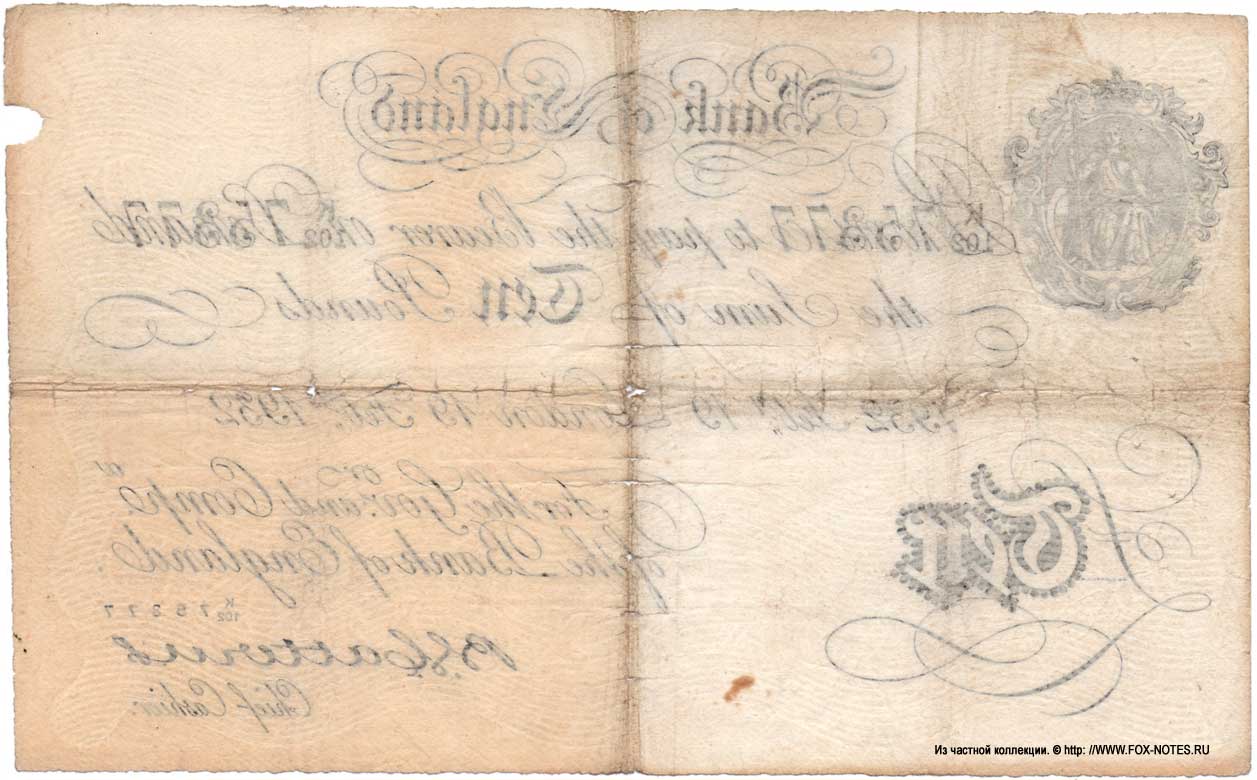 Bank of England
K/102 75377 to pay the Bearer on K/102 75377
the Sum of Ten Pounds
1932 Feby. 19 London 19 Feby. 1932
For the Govr. and Compa.
of the Bank of England.
K/102 75377
B.G. Catterns
Chief Cashier.
Ten
Из частной коллекции. © http: //WWW.FOX-NOTES.RU